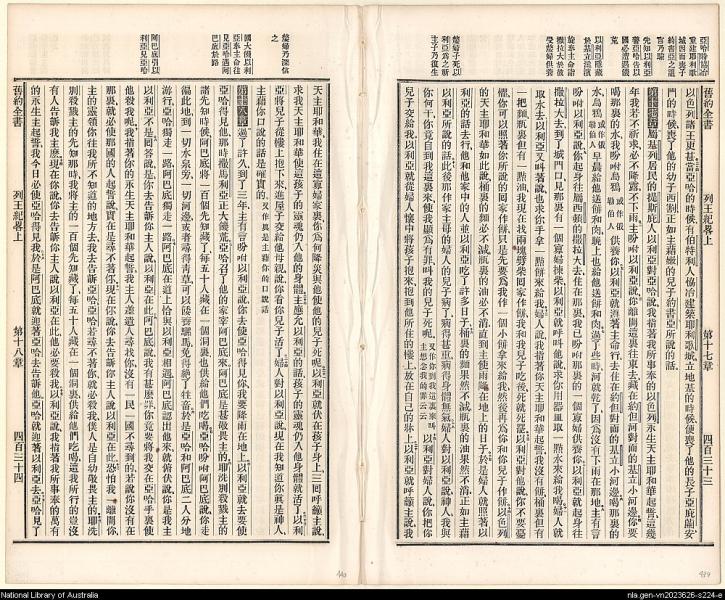 舊約全書
列王紀畧上
第十七章
四百三十三
以色列諸王更甚當亞哈的時候有伯特利人協冶建築耶利哥城立地基的時候喪了他的長子亞庇蘭安
門的時候喪了他的幼子西割正如主藉嫩的兒子約書亞所說的話
第十七章
年我若不祈求必不降露不下雨主吩咐以利亞說你離開這裏往東去藏在約但河對面的基立小河邊你要
喝那裏的水我吩咐烏鴉
供養你以利亞就遵著主命行去住在約但對面的基立小河邊喝那裏的
水烏鴉
早晨給他送餅和肉晚上也給他送餅和肉過了些時河就乾了因爲沒有下雨在那地主有言
吩咐以利亞說你起身往屬西頓的撒拉大去住在那裏我已吩咐那裏的一個寡婦供養你以利亞就起身往
撒拉大去到了城門口見那裏有一個寡婦揀柴以利亞就呼叫他說求你用器皿取一點水來給我喝婦人就
取水去以利亞又叫著說也求你手拿一點餅來給我婦人說我指著你天主耶和華起誓我沒有餅桶裏但有
一把麵瓶裏但有一點油我現在找兩塊劈柴回家作餅我和我兒子吃死就死罷以利亞對他說你不要
懼你可以照著你所說的回家作餅只是先要爲我作一個小餅拿來給我然後再爲你和你兒子作餅以色列
的天主耶和華如此說桶裏的麵必不減瓶裏的油必不缺直到主使雨降在地上的日子於是婦人就照著以
利亞的話去行他和他家中的人並以利亞吃了許多日子桶裏的麵果然不減瓶裏的油果然不缺正如主藉
以利亞所說的話此後那作家主母的婦人的兒子病了病得甚重病得身體無氣婦人對以利亞說神人我與
你何干你竟到我這裏來使我顯爲有罪叫我的兒子死呢
以利亞對婦人說你把你
兒子交給我以利亞就從婦人懷中將孩子抱來抱到他所住的樓上放在自己的牀上以利亞就呼籲主說我
國大饑以利
亞奉主命往
見亞哈遇阿
巴底於路
阿巴底引以
利亞見亞哈
舊約全書
列王紀畧上
第十八章
四百三十四
天主耶和華我住在這寡婦家裏你爲何降災與他使他的兒子死呢以利亞就伏在孩子身上三回呼籲主說
求我天主耶和華使這孩子的靈魂仍入他的身體主應允以利亞的話孩子的靈魂仍入他身體就活了以利
亞將兒子從樓上抱下來進屋子交給他母親說你看你兒子活了婦人對以利亞說現在我知道你眞是神人
主藉你口說的話是確實的
第十八章
過了許久到了三年主有言吩咐以利亞說你去使亞哈得見你我要降雨在地上以利亞就去要使
亞哈得見他那時撒馬利亞正大饑荒亞哈召了他的家宰阿巴底來阿巴底是甚敬畏主的耶洗別殺戮主的
諸先知時候阿巴底將一百個先知藏了每五十人藏在一個洞裏也供給他們吃喝亞哈吩咐阿巴底說你走
遍此地到一切水泉旁一切河邊或者尋得靑草可以餧養騾馬免得絕了牲畜於是亞哈和阿巴底二人分地
游行亞哈獨走一路阿巴底獨走一路阿巴底在道上恰與以利亞相遇阿巴底認出他來就俯伏說你是我主
以利亞不是回答說是你去吿訴你主人說以利亞在此阿巴底說我有甚麽罪你竟要將我交在亞哈手裏使
他殺我呢我指著你的永生天主耶和華起誓我主人遣人尋找你沒有一民一國不尋到的若說你沒有在
那裏就必使那國的人起誓說實在是尋不著你現在你說你去吿訴你主人說以利亞在此恐怕我一離開你
主的靈領你往我所不知道的地方去我去吿訴亞哈亞哈尋不著你就必殺我僕人是自幼敬畏主的耶洗
別殺戮主的先知那時我將主的一百個先知藏了每五十人藏在一個洞裏供給他們吃喝這我所行的豈沒
有人吿訴我主麽現在你說你去吿訴你主人說以利亞在此他必要殺我以利亞說我指著所事奉的萬有
的永生主起誓我今日必使亞哈得見我於是阿巴底就迎著亞哈去吿訴他亞哈就迎著以利亞去亞哈見了
National Library of Australia
nla.gen-vn2023626-s224-e